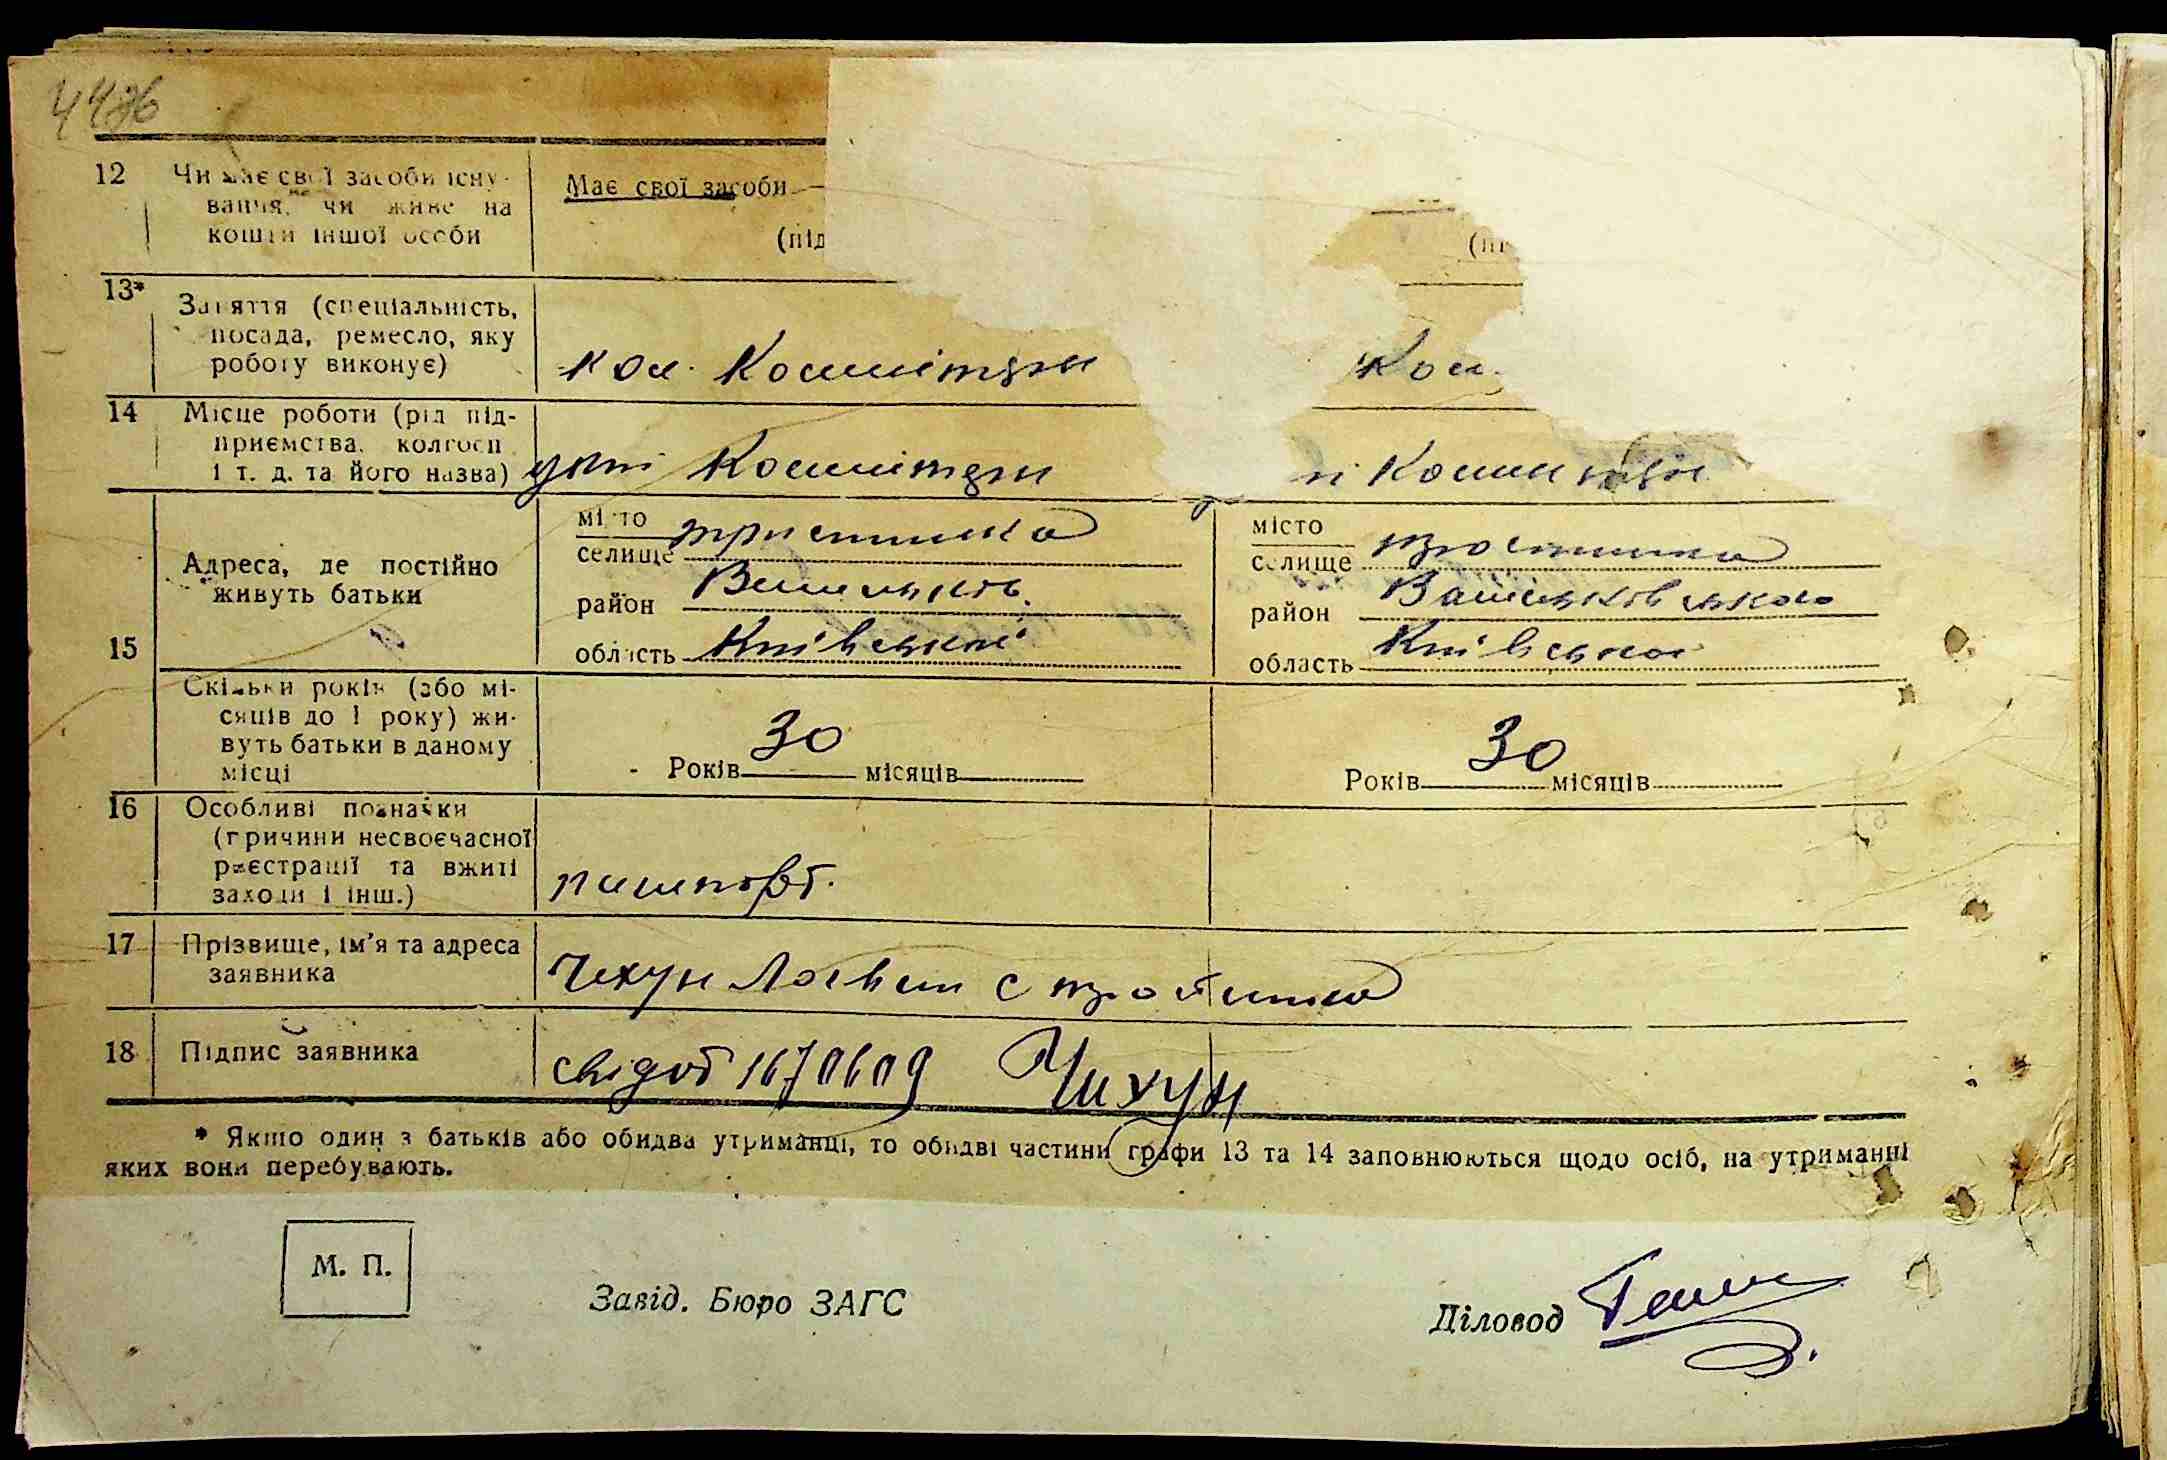 12 Чи має свої засоби існу-
вання, чи живе на
кошти іншої особи
Має свої засоби
(під
13* Заняття (спеціальність,
посада, ремесло, яку
роботу виконує)
кол. Комінтерн
Ком.
14 Місце роботи (рід під-
приємства, колгосп
і т. д. та його назва)
Комінтерн
Комінтерн
15
Адреса, де постійно
живуть батьки
місто
селище
район
область Київської
місто
селище
район Васильківського
область Київської
Скільки років (або мі-
сяців до 1 року) жи-
вуть батьки в даному
місці
Років 30 місяців
Років 30 місяців
16 Особливі познаки
(причини несвоєчасної
реєстрації та вжиті
заходи і інш.)
пашпорт.
17 Прізвище, ім'я та адреса
заявника
Чехун с
18 Підпис заявника
свідот 1670609 Чихун
* Якщо один з батьків або обидва утриманці, то обидві частини графи 13 та 14 заповнюються щодо осіб, на утриманні
яких вони перебувають.
М. П.
Завід. Бюро ЗАГС
Діловод